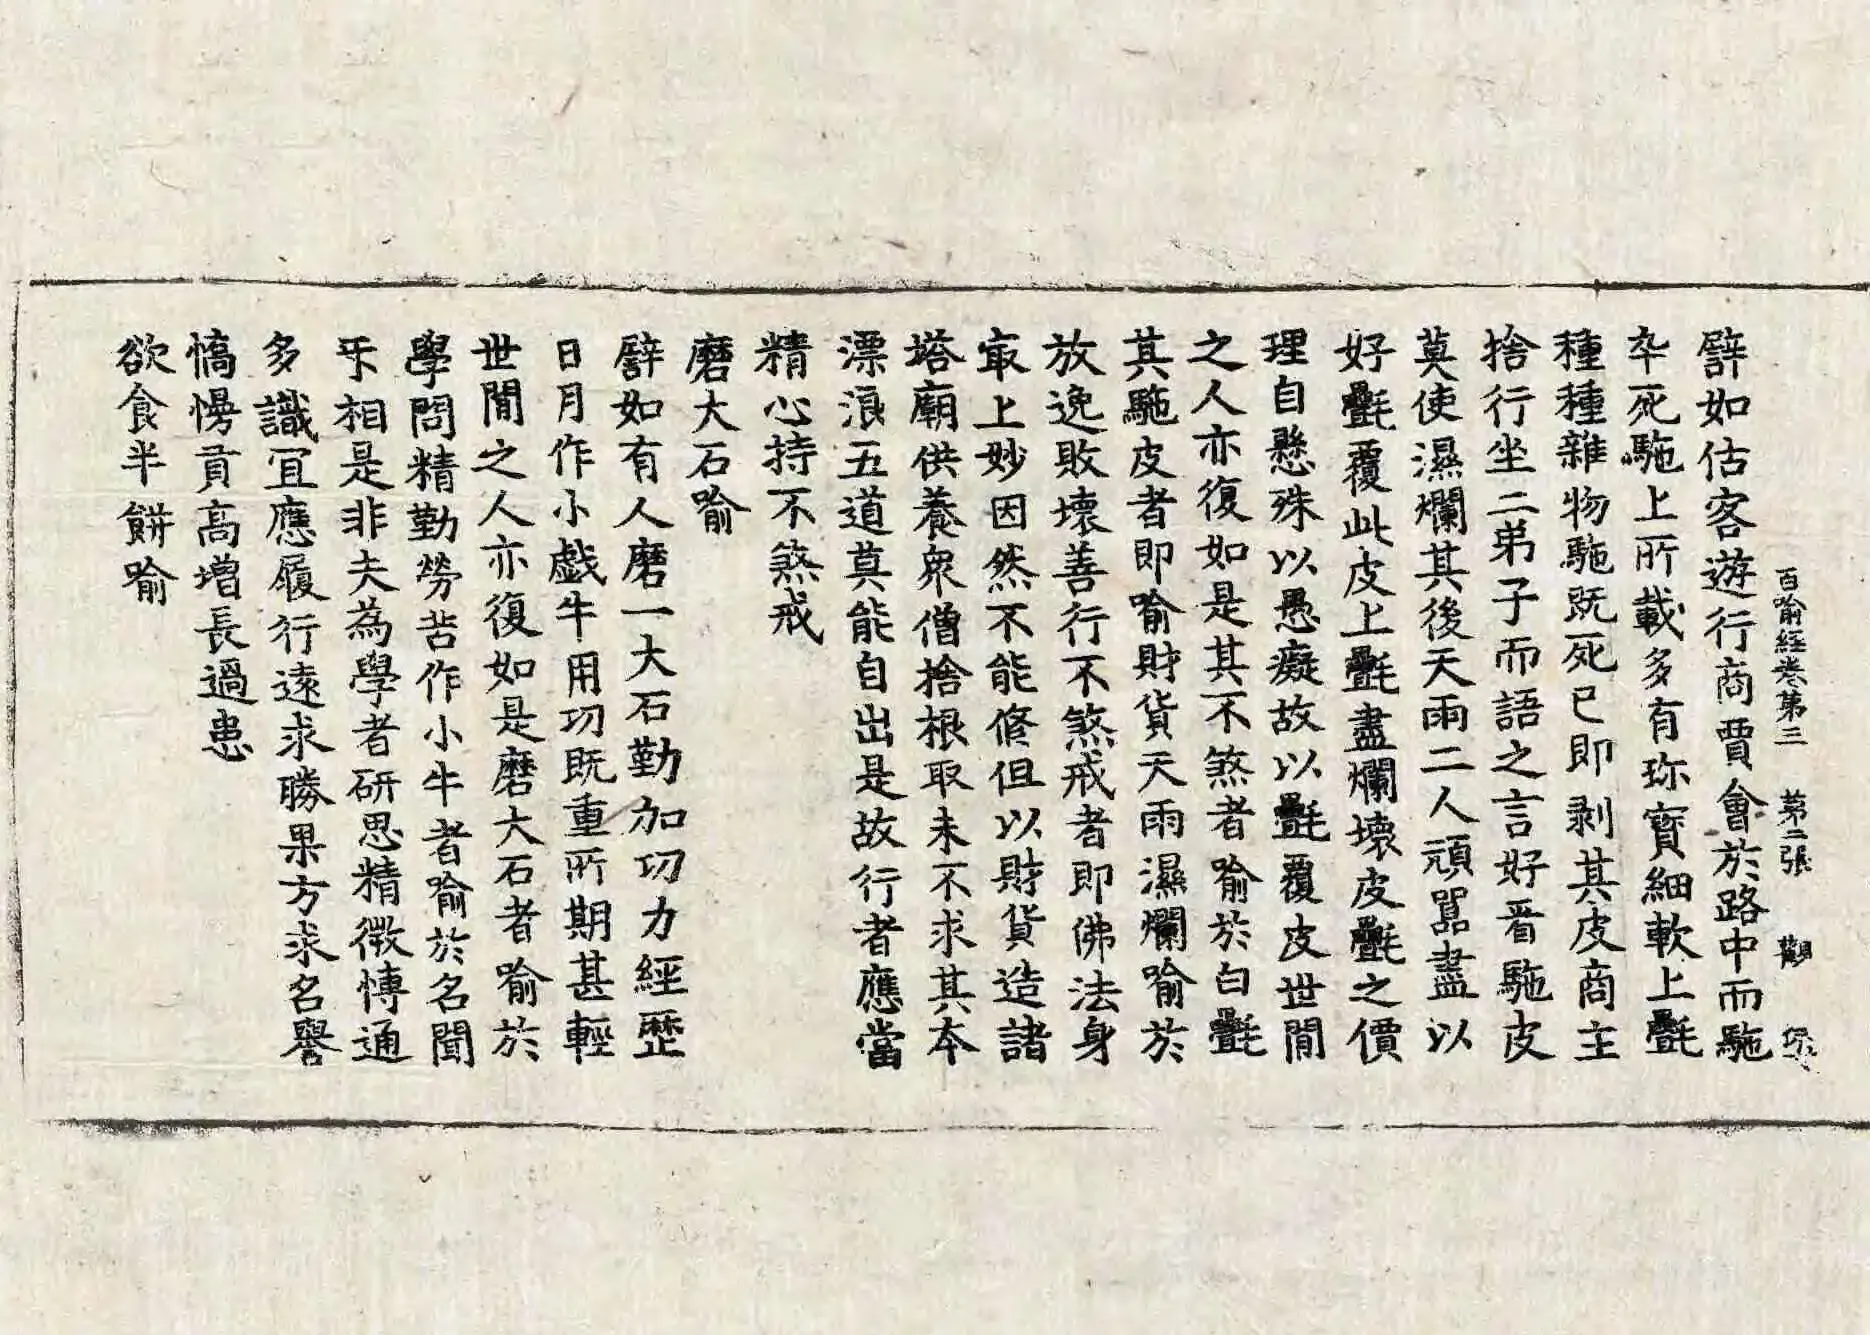 百喻經卷第三　第二張　觀
譬如估客遊行商賈會於路中而駞
卒死駞上所載多有珎寶細軟上氎
種種雜物駞既死已即剥其皮商主
捨行坐二弟子而語之言好看駞皮
莫使濕爛其後天雨二人頑嚚盡以
好氎覆此皮上氎盡爛壞皮氎之價
理自懸殊以愚癡故以氎覆皮世間
之人亦復如是其不煞者喻於白氎
其駞皮者即喻財貨天雨濕爛喻於
放逸敗壞善行不煞戒者即佛法身
冣上妙因然不能修但以財貨造諸
塔廟供養衆僧捨根取末不求其本
漂浪五道莫能自出是故行者應當
精心持不煞戒
磨大石喻
譬如有人磨一大石勤加功力經歷
日月作小戲牛用功既重所期甚輕
世間之人亦復如是磨大石者喻於
學問精勤勞苦作小牛者喻於名聞
乎相是非夫為學者研思精微愽通
多識宜應履行遠求勝果方求名譽
憍慢貢高增長過患
欲食半餅喻